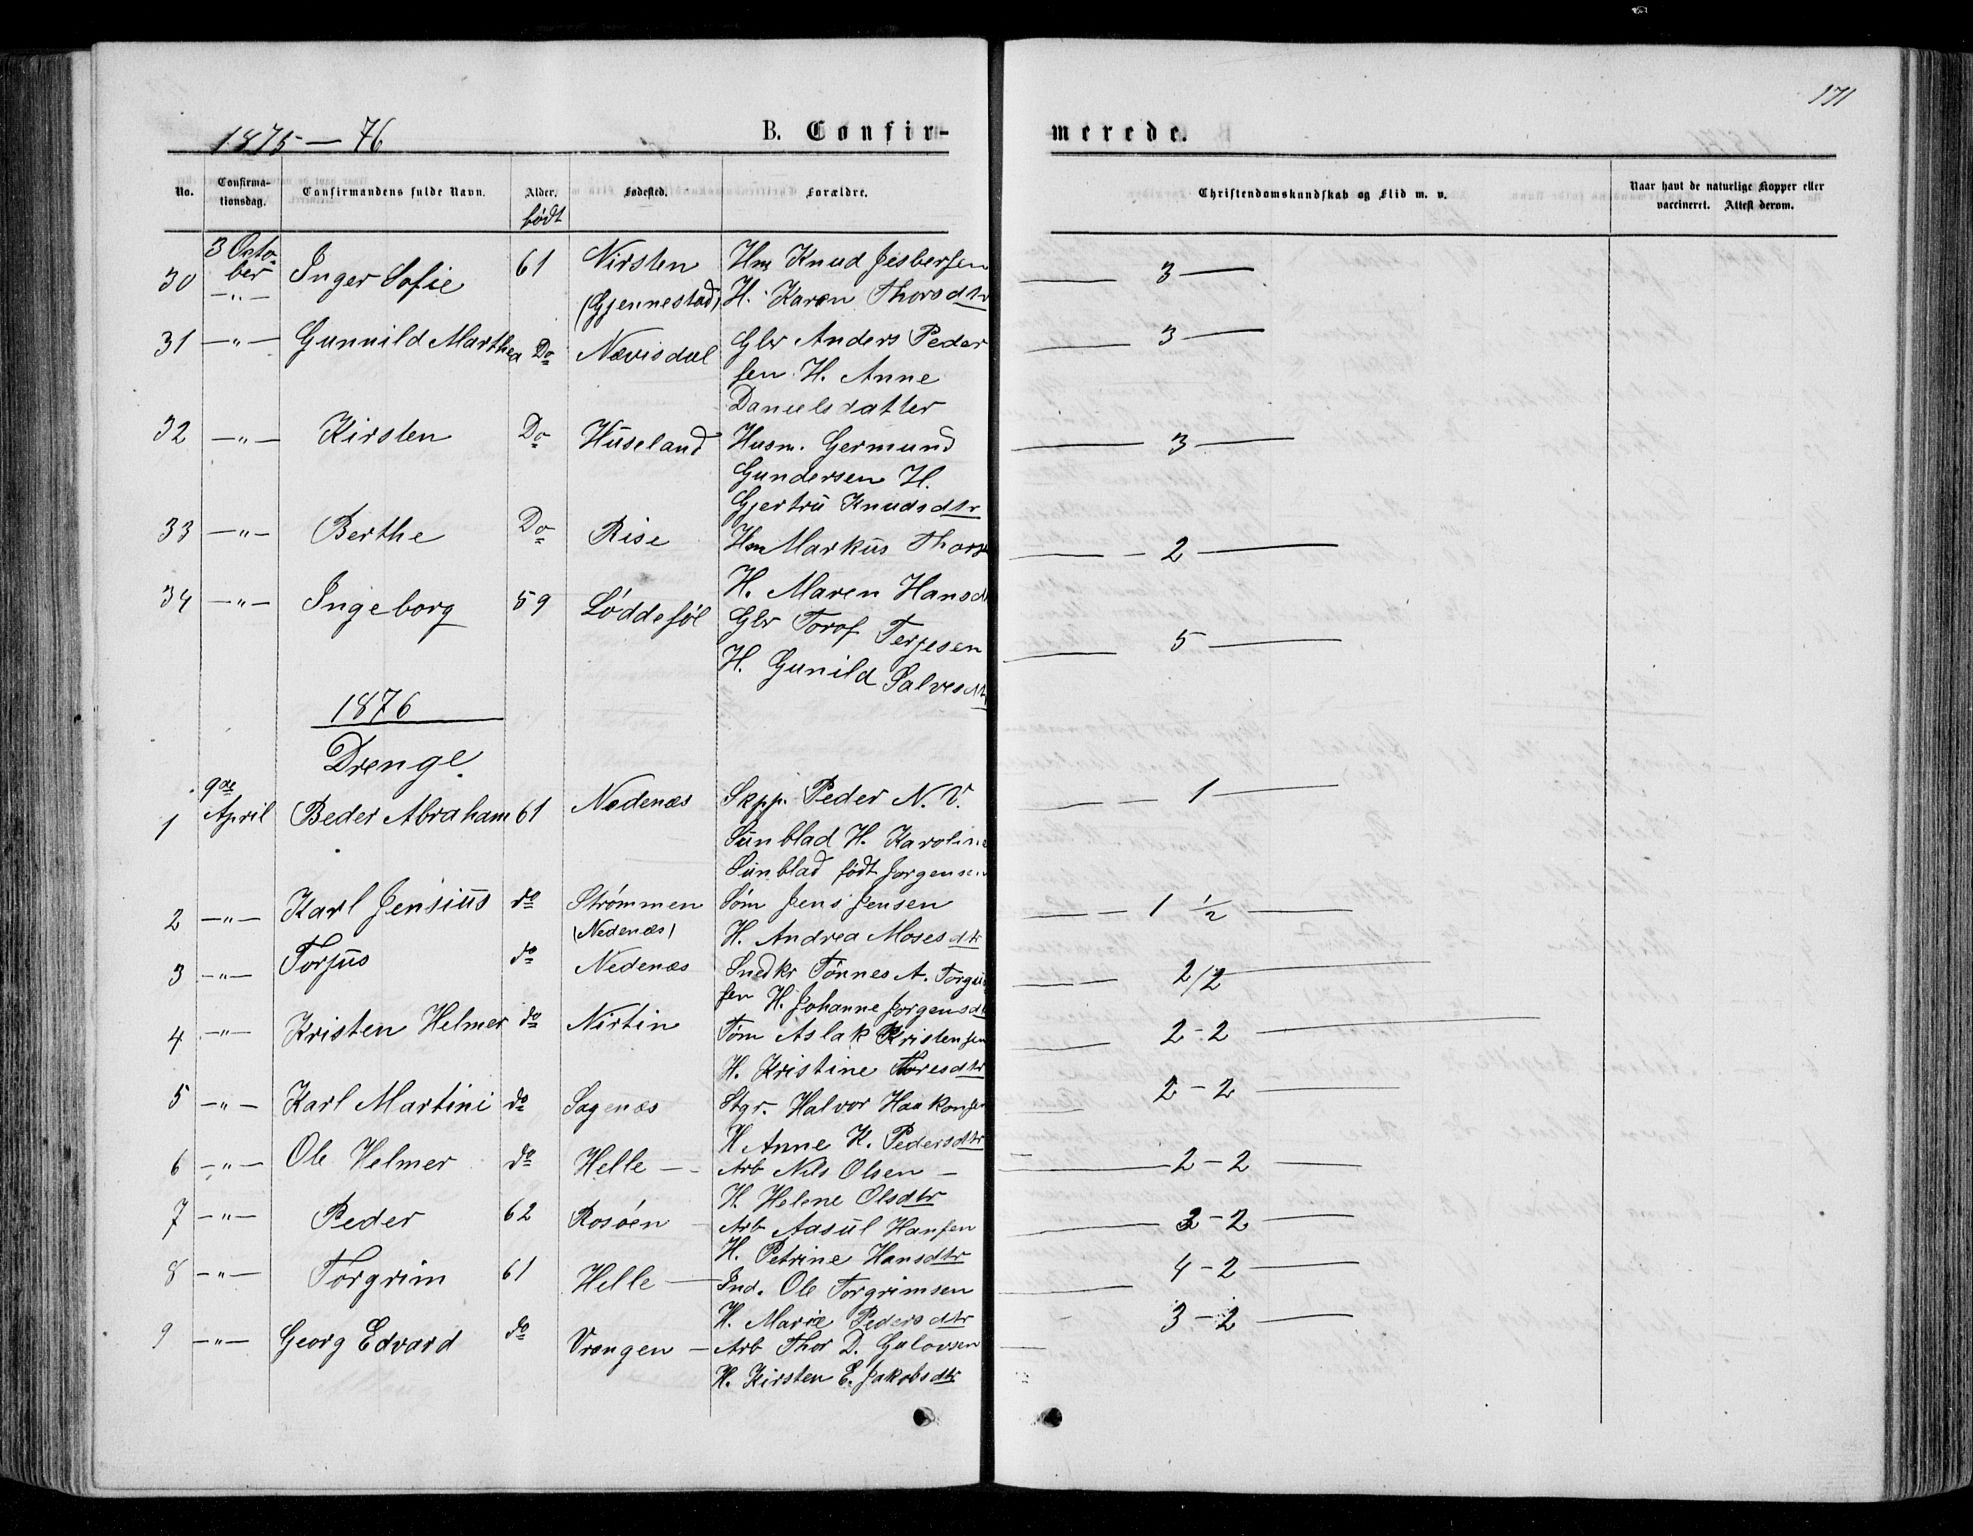 171
1875 — 76
B. Confir-
merede.
No.
Confirma-
tionsdag.
Confirmandens fulde Navn.
Alder.
født
Fødested.
Forældre.
Christendomskundskab og Flid m. v.
Naar havt de naturlige Kopper eller
vaccineret. Attest derom.
30 3 Octo-
ber
—"— Inger Sofie 61 Nirsten Hm Knud Jesbersen — 3 —
(Gjennestad) H. Karen Thorsdtr
31 —"— Gunnild Marthea Do Nævisdal Gbr Anders Peder — 3 —
sen H. Anne
Danielsdatter
32 —"— Kirsten Do Huseland Husm. Germund — 3 —
Gundersen H.
Gjertru Knudsdtr
33 —"— Berthe Do Rise Hm Markus Thors — 2 —
H. Maren Hansd
34 —"— Ingeborg 59 Løddesøl Gbr Torof Terjesen — 5 —
H. Gunild Salvesdt
1876
Drenge
1 9de
April Peder Abraham 61 Nedenæs Skpp. Peder N. V. — 1 —
Sunblad H. Karoline
Sunblad født Jorgensen
2 —"— Karl Jensius do Strømmen Søm Jens Jensen — 1 ½ —
(Nedenæs) H. Andrea Mosesdtr
3 —"— Torjus do Nedenæs Snedkr Tønnes A. Torgu — 2/2 —
sen H. Johanne Jorgensd
4 —"— Kristen Helmer do Nirtin Tøm Aslak Kristensen — 2-2 —
H. Kristine Toresdtr
5 —"— Karl Martini do Sagenæs Stgr. Halvor Haakonsen — 2-2 —
H Anne K. Pedersdtr
6 —"— Ole Helmer do Helle — Arb Nils Olsen — — 2-2 —
H. Helene Olsdtr
7 —"— Peder 62 Rosøen Arb Aasul Hansen — 3-2 —
H. Petrine Hansdtr
8 —"— Torgrim 61 Helle — Ind. Ole Torgrimsen — 4-2 —
H. Marie Pedersdtr
9 —"— Georg Edvard do Vrengen — Arb Thor D. Gulovsen 3-2 —
H. Kirsten E. Jakobsdtr